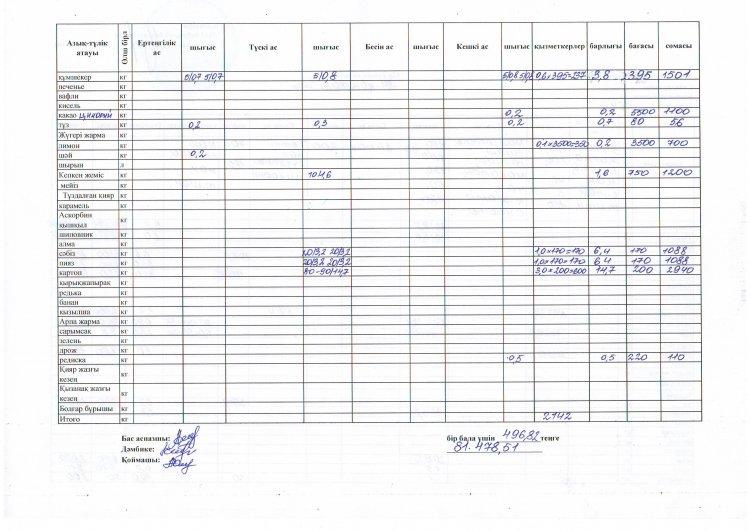 Азық-түлік атауы | Өлш бірл | Ертеңгілік ас | шығыс | Түскі ас | шығыс | Бесін ас | шығыс | Кешкі ас | шығыс | қызметкерлер | барлығы | бағасы | сомасы
құмшекер | кг | 5/0,7 5/0,7 | 5/0.8 | 0,6 x 395=237 | 3,8 | 395 | 1501
печенье | кг
вафли | кг
кисель | кг
какао цикорий | кг | 0,2 | 0,2 | 5500 | 1100
тұз | кг | 0,2 | 0,3 | 0,2 | 0,7 | 80 | 56
Жүгері жарма | кг
лимон | кг | 0,1×3500=350 | 0,2 | 3500 | 700
шай | кг | 0,2
шырын | л
Кепкен жеміс | кг | 10/1,6 | 1,6 | 750 | 1200
мейіз | кг
Тұздалған қияр | кг
карамель | кг
Аскорбин қышқыл | кг
шиповник | кг
алма | кг
сәбіз | кг | 20/3,2 20/3,2 | 1,0×170=170 | 6,4 | 170 | 1088
пияз | кг | 20/3,2 20/3,2 | 1,0×170=170 | 6,4 | 170 | 1088
картоп | кг | 80-90/14,7 | 3,0×200=600 | 14,7 | 200 | 2940
қырыққапырақ | кг
редька | кг
банан | кг
қызылша | кг
Арпа жарма | кг
сарымсақ | кг
зелень | кг
дрож | кг
редиска | кг | 0,5 | 0,5 | 220 | 110
Қияр жазғы кезең | кг
Қызанақ жазғы кезең | кг
Болгар бұрышы | кг
Итого | кг | 2142
Бас аспазшы:
бір бала үшін 496,82 теңге
Дәмбике:
81.478,51
Қоймашы: